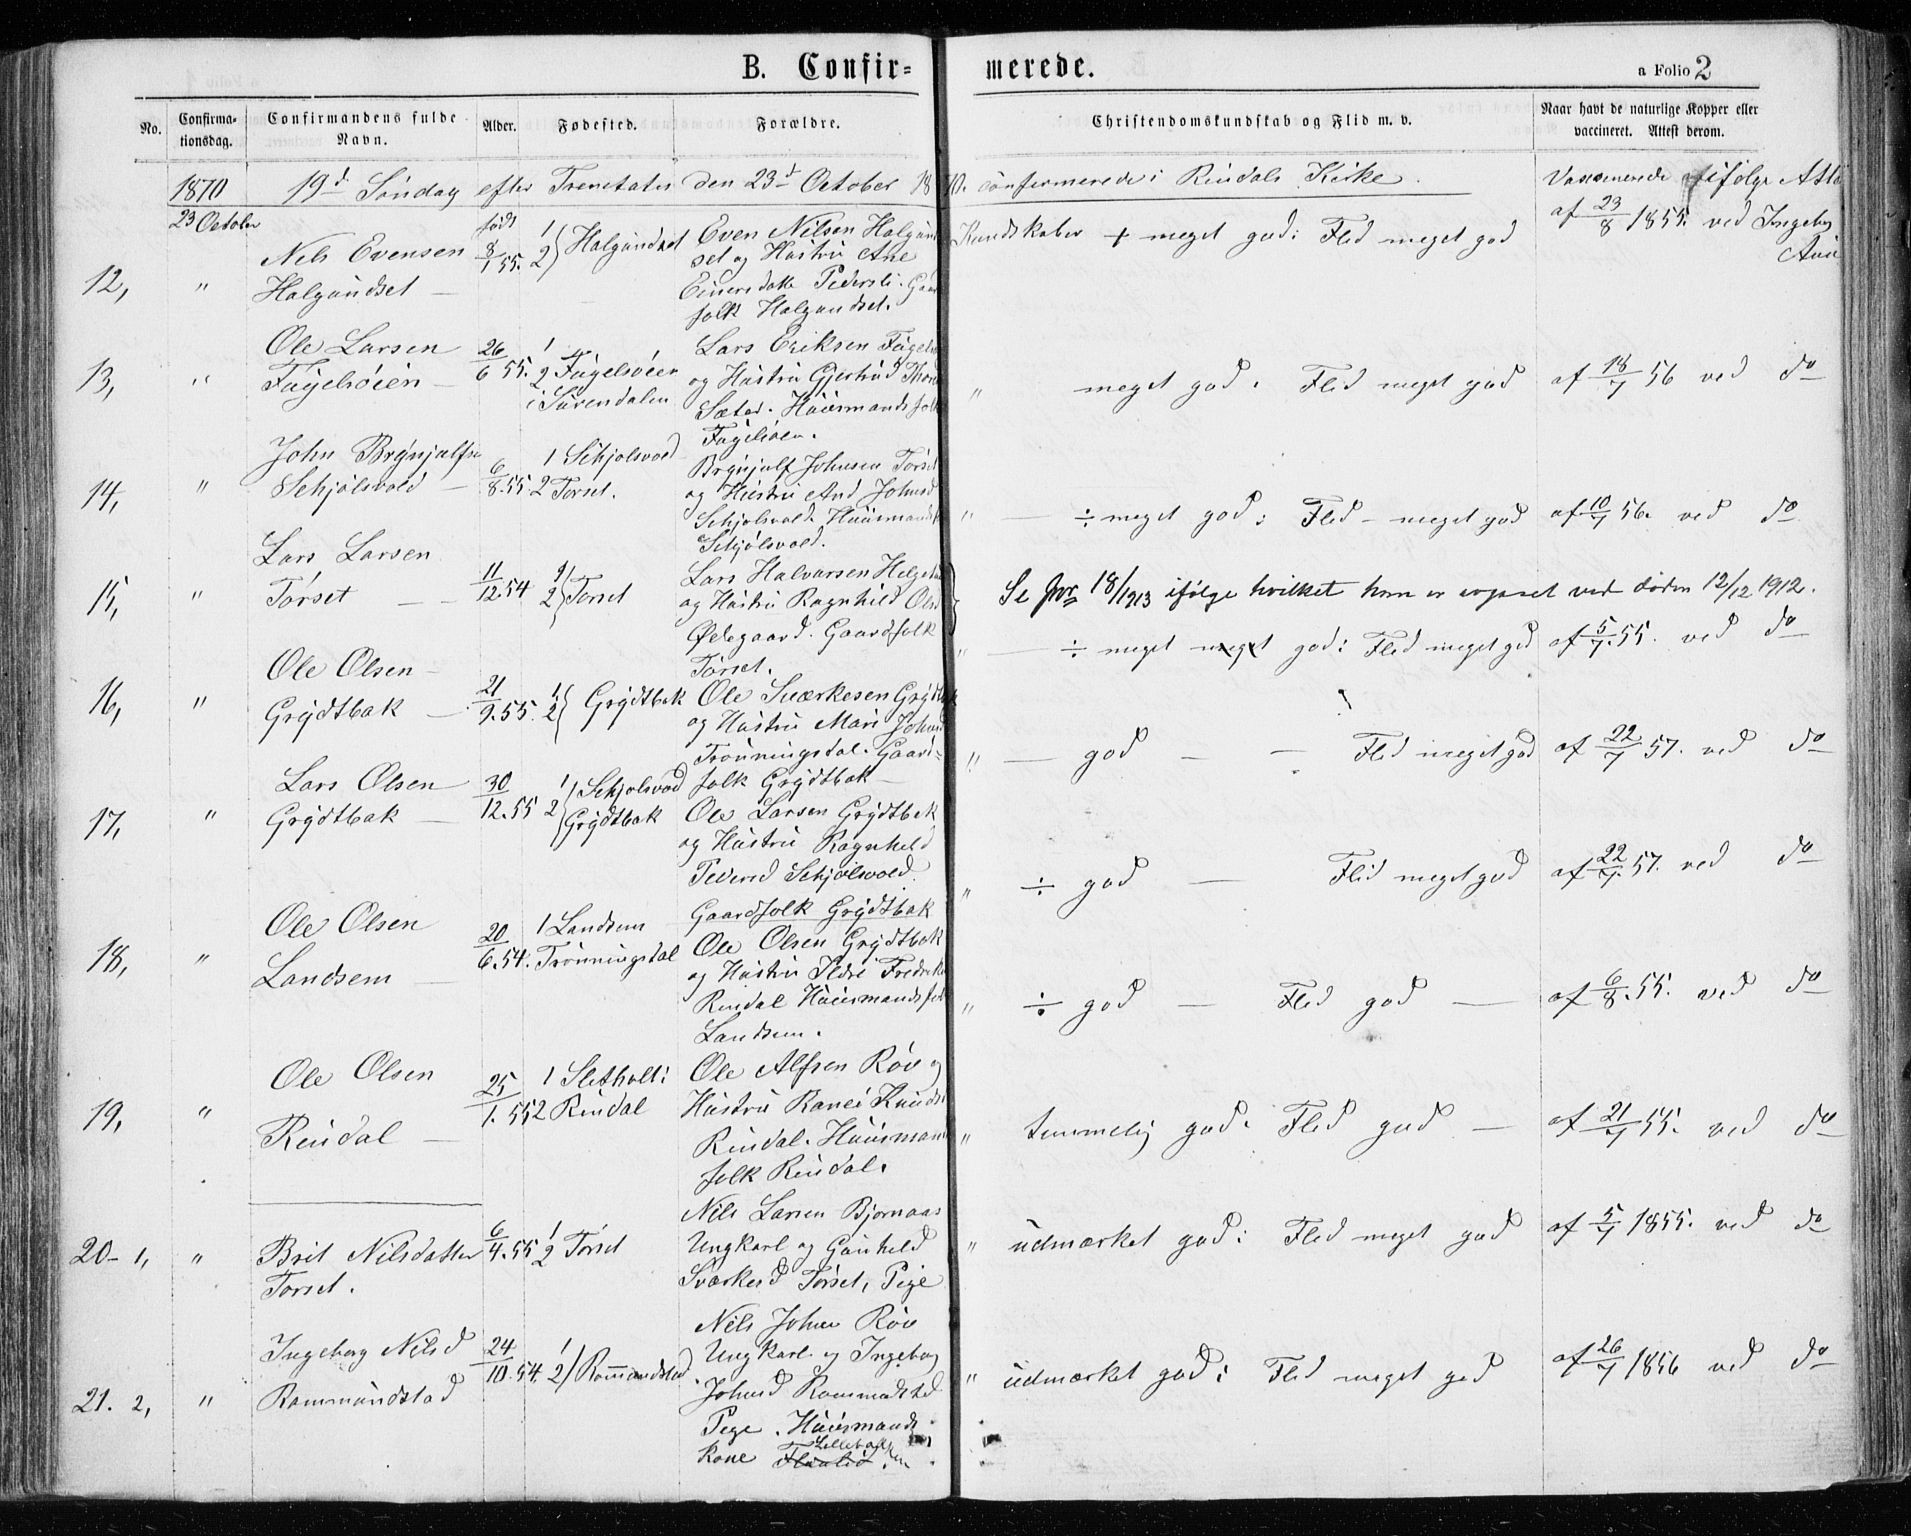 B. Confir-
merede.
a Folio 2
No.
Confirma-
tionsdag.
Confirmandens fulde
Navn.
Alder.
Fødested.
Forældre.
Christendomskundskab og Flid m. v.
Naar havt de naturlige Kopper eller
vaccineret. Attest derom.
1870 19d Søndag efter Trenetates den 23d October 1870. confermerede i Rindals Kirke.
23 October
12, " Nels Evensen
Halgundset —
født
8/1 55.
1
2 } Halgundset
Even Nilsen Halgund
set og Hustru Ane
Einersdatter Pedersli. Gaard
folk Halgundset.
Kundskaber + meget god: Flid meget god
Vaccenerede ifølge Att
af 23/8 1855. ved Ingebr
13, " Ole Larsen
Fugelsøien —
26/6 55.
1
2 Fugelsøien
i Surendalen
Lars Eriksen Fugels
og Hustru Gjertrud Thor
Sæter. Huusmandsfolk
Fugelsøen.
" meget god. Flid meget god
af 18/7 56 ved do
14, " John Brynjulfs
Schjølsvold —
6/8.55
1 Schjolsvold
2 Torset.
Brynjulf Johnsen Torset
og Hustru And Johnsd
Schjolsvold. Huusmands
Schjølsvold.
" — ÷ meget god: Flid — meget god
af 10/7 56. ved do
15, " Lars Larsen
Torset — —
11/12.54
1
2 } Torset
Lars Halvarsen Helge
og Hustru Ragnhild Ols
Ødegaard. Gaardfolk
Torset.
Se jnr 18/1913 ifølge hvilket han er avgaaet ved døden 12/12 1912.
" — ÷ meget meget god: Flid meget god
af 5/7.55. ved do
16, " Ole Olsen —
Grýdtbak —
21/9.55.
1
2 { Grýdtbak
Ole Sværkesen Grýdtbak
og Hustru Mari Johns
Trønningsdal. Gaard-
folk Grýdtbak —
" — god — — Flid meget god
af 22/7 57. ved do
17, " Lars Olsen
Grýdtbak —
30/12.55
1
2 { Schjolsvod
Grýdtbak
Ole Larsen Grýdtbak
og Hustru Ragnheld
Pedersd Schjølsvold.
Gaardfolk Grýdtbak
" ÷ god — Flid meget god
af 22/7.57. ved do
18, " Ole Olsen
Landsem —
20/6.54.
1 Landsem
Trønningsdal
Ole Olsen Grýdtbak
og Hustru Ildri Fredrik
Rindal Huusmandsfolk
Landsem.
" ÷ god — Flid god —
af 6/8.55. ved do
19, " Ole Olsen
Rindal —
25/1.55
1 Sletholt i
2 Rindal
Ole Alfsen Røv og
Hustru Ranei Knuds
Rindal. Huusmand
folk Rindal.
" temmelig god. Flid god —
af 21/7 55. ved do
20- 1, " Brit Nilsdatter
Torset.
6/4.55
1
2 Torset
Nils Larsen Bjørnaas
Ungkarl og Gunheld
Sværkesd Torset, Pige
" udmærket god: Flid meget god
af 5/7 1855. ved do
21. 2, " Ingeborg Nilsd
Rommundstad
24/10.54.
1
2 } Romandstad
Nils Johns Røv
Ungkarl og Ingeborg
Johnsd Rommundstad
Pige. Huusmands
Kone
" udmærket god: Flid meget god
af 26/7 1856 ved do